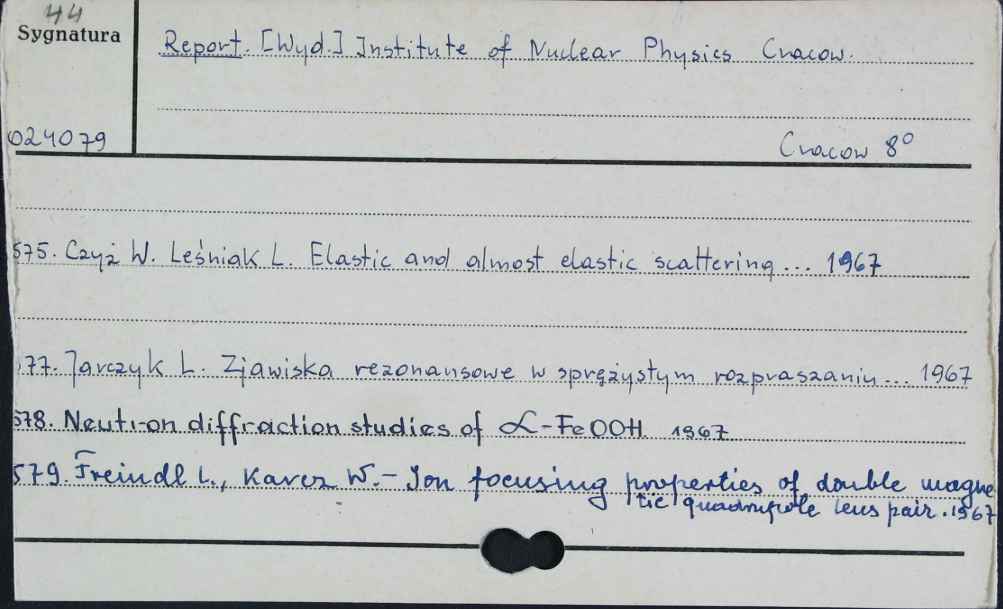 44
Sygnatura
Report. [Wyd.] Institute of Nuclear Physics Cracow.
024079
Cracow 8°
575. Czyż W. Leśniak L. Elastic and almost elastic scattering... 1967
77. Jarczyk L. Zjawiska rezonansowe w sprężystym rozpraszaniu... 1967
578. Neutron diffraction studies of α-FeOOH 1967
579. Freindl L., Karcz W. - Ion focusing properties of double magne
tic quadrupole lens pair. 1967